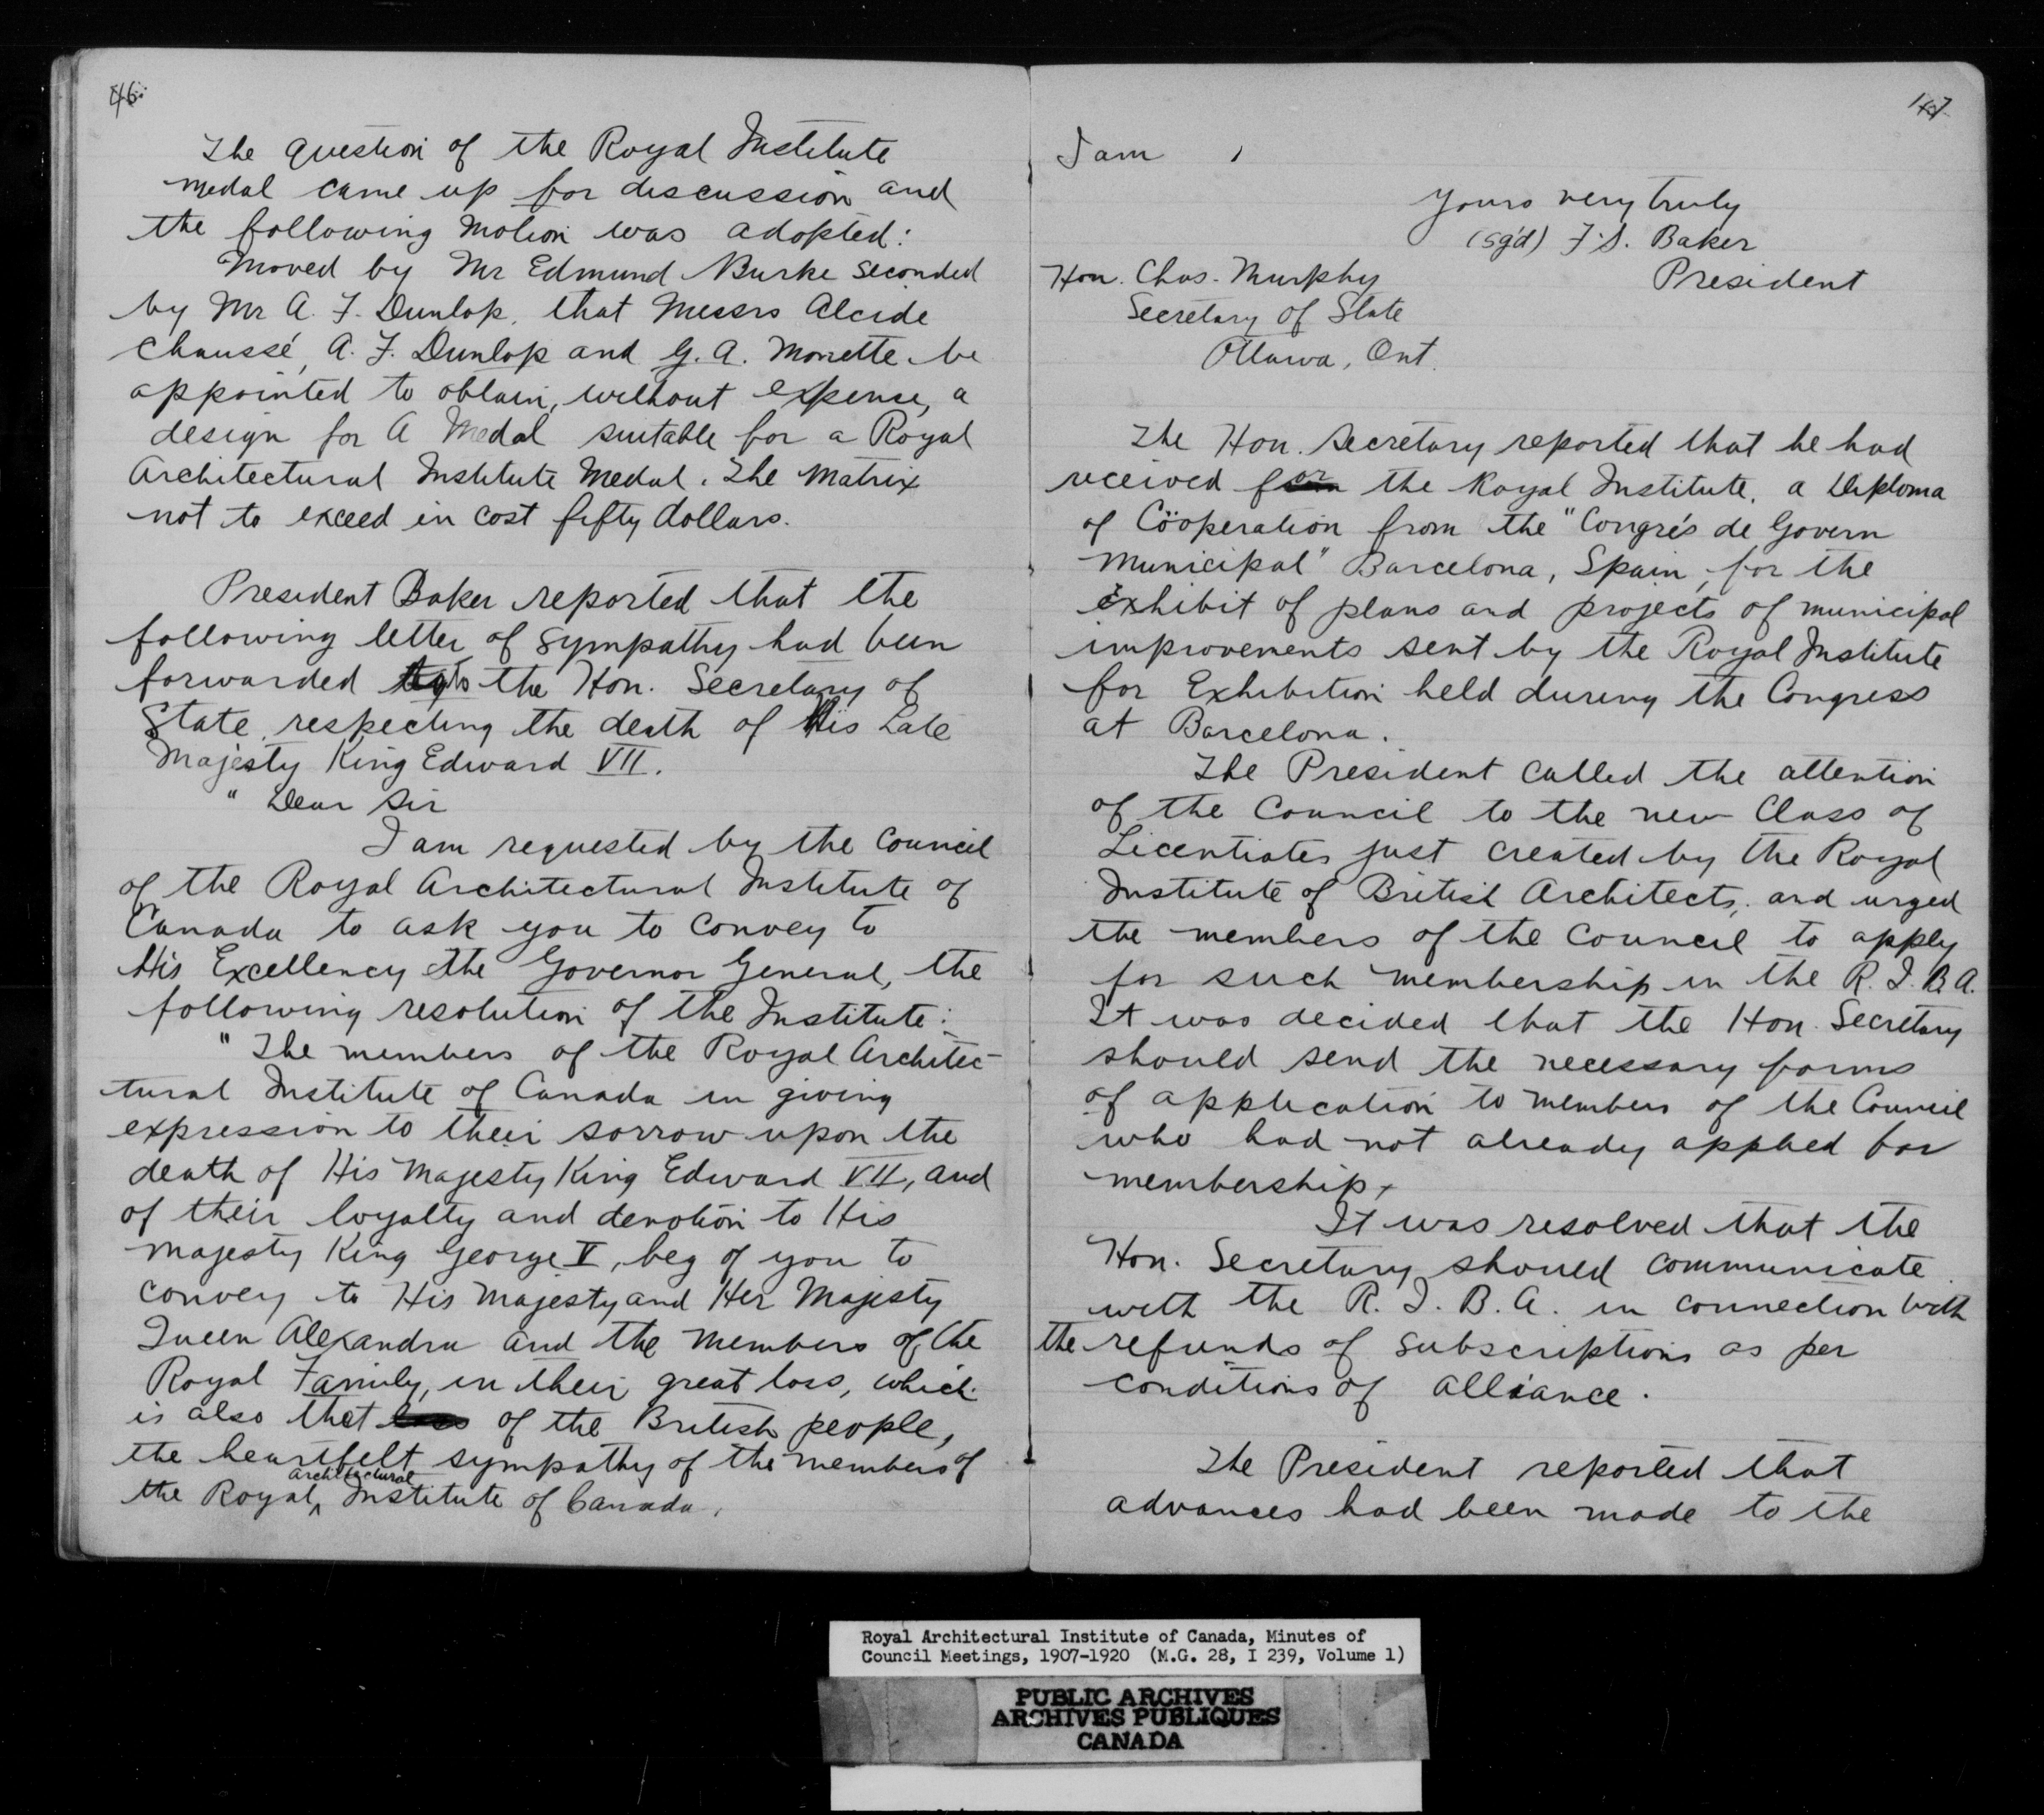 46
The question of the Royal Institute
medal came up for discussion and
the following motion was adopted:
Moved by Mr Edmund Burke seconded
by Mr A. F. Dunlop, that Messrs Alcide
Chaussé, A. F. Dunlop and G. A. Monette be
appointed to obtain, without expense, a
design for a Medal suitable for a Royal
Architectural Institute Medal. The Matrix
not to exceed in cost fifty dollars.
President Baker reported that the
following letter of sympathy had been
forwarded to the Hon. Secretary of
State, respecting the death of His Late
Majesty King Edward VII.
" Dear Sir
I am requested by the Council
of the Royal Architectural Institute of
Canada to ask you to convey to
His Excellency the Governor General, the
following resolution of the Institute:
" The members of the Royal Architec-
tural Institute of Canada in giving
expression to their sorrow upon the
death of His Majesty King Edward VII, and
of their loyalty and devotion to His
Majesty King George V, beg of you to
convey to His Majesty and Her Majesty
Queen Alexandra and the members of the
Royal Family, in their great loss, which
is also that loss of the British people,
the heartfelt sympathy of the members of
the Royal Architectural Institute of Canada.
47
I am ,
Yours very truly
(sg'd) F. S. Baker
President
Hon. Chas. Murphy
Secretary of State
Ottawa, Ont.
The Hon. Secretary reported that he had
received for the Royal Institute, a Diploma
of Coöperation from the "Congrés de Govern
Municipal" Barcelona, Spain, for the
exhibit of plans and projects of municipal
improvements sent by the Royal Institute
for Exhibition held during the Congress
at Barcelona.
The President called the attention
of the Council to the new Class of
Licentiates just created by the Royal
Institute of British Architects, and urged
the members of the Council to apply
for such membership in the R. I. B. A.
It was decided that the Hon. Secretary
should send the necessary forms
of application to members of the Council
who had not already applied for
membership.
It was resolved that the
Hon. Secretary should communicate
with the R. I. B. A. in connection with
the refunds of subscriptions as per
conditions of alliance.
The President reported that
advances had been made to the
Royal Architectural Institute of Canada, Minutes of
Council Meetings, 1907-1920 (M.G. 28, I 239, Volume 1)
PUBLIC ARCHIVES
ARCHIVES PUBLIQUES
CANADA